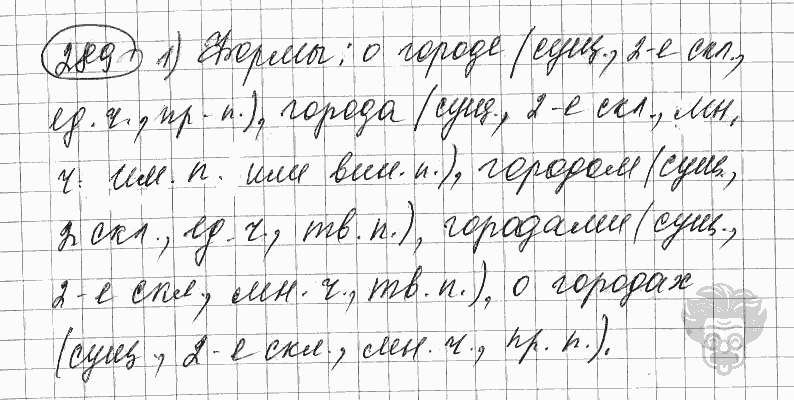 289. 1) Формы: о городе (сущ., 2-е скл.,
ед. ч., пр. п.), города (сущ., 2-е скл., мн.
ч. им. п. или вин. п.), городом (сущ.,
2 скл., ед. ч., тв. п.), городами (сущ.,
2-е скл., мн. ч., тв. п.), о городах
(сущ., 2-е скл., мн. ч., пр. п.).